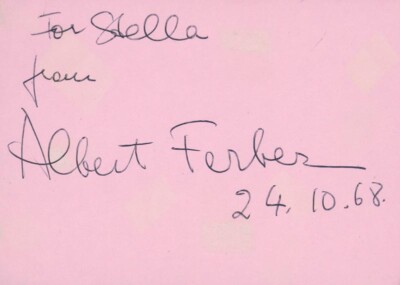 For Stella
from
Albert Ferber
24.10.68.